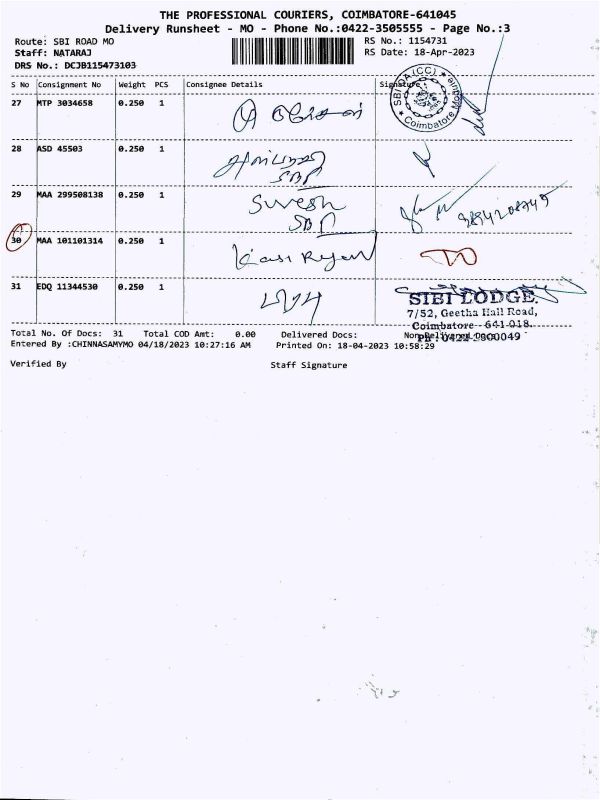 THE PROFESSIONAL COURIERS, COIMBATORE-641045
Delivery Runsheet - MO - Phone No.:0422-3505555 - Page No.:3
Route: SBI ROAD MO RS No.: 1154731
Staff: NATARAJ RS Date: 18-Apr-2023
DRS No.: DCJB115473103
S No Consignment No Weight PCS Consignee Details Signature
SBI OA (CC)
Coimbatore
27 MTP 3034658 0.250 1
28 ASD 45503 0.250 1
SBI
29 MAA 299508138 0.250 1 Suresh
SBI
30 MAA 101101314 0.250 1
31 EDQ 11344530 0.250 1
SIBI LODGE.
7/52, Geetha Hall Road,
Coimbatore - 641 018.
Total No. Of Docs: 31 Total COD Amt: 0.00 Delivered Docs:
Ph : 0422-2300049
Entered By :CHINNASAMYMO 04/18/2023 10:27:16 AM Printed On: 18-04-2023 10:58:29
Verified By Staff Signature